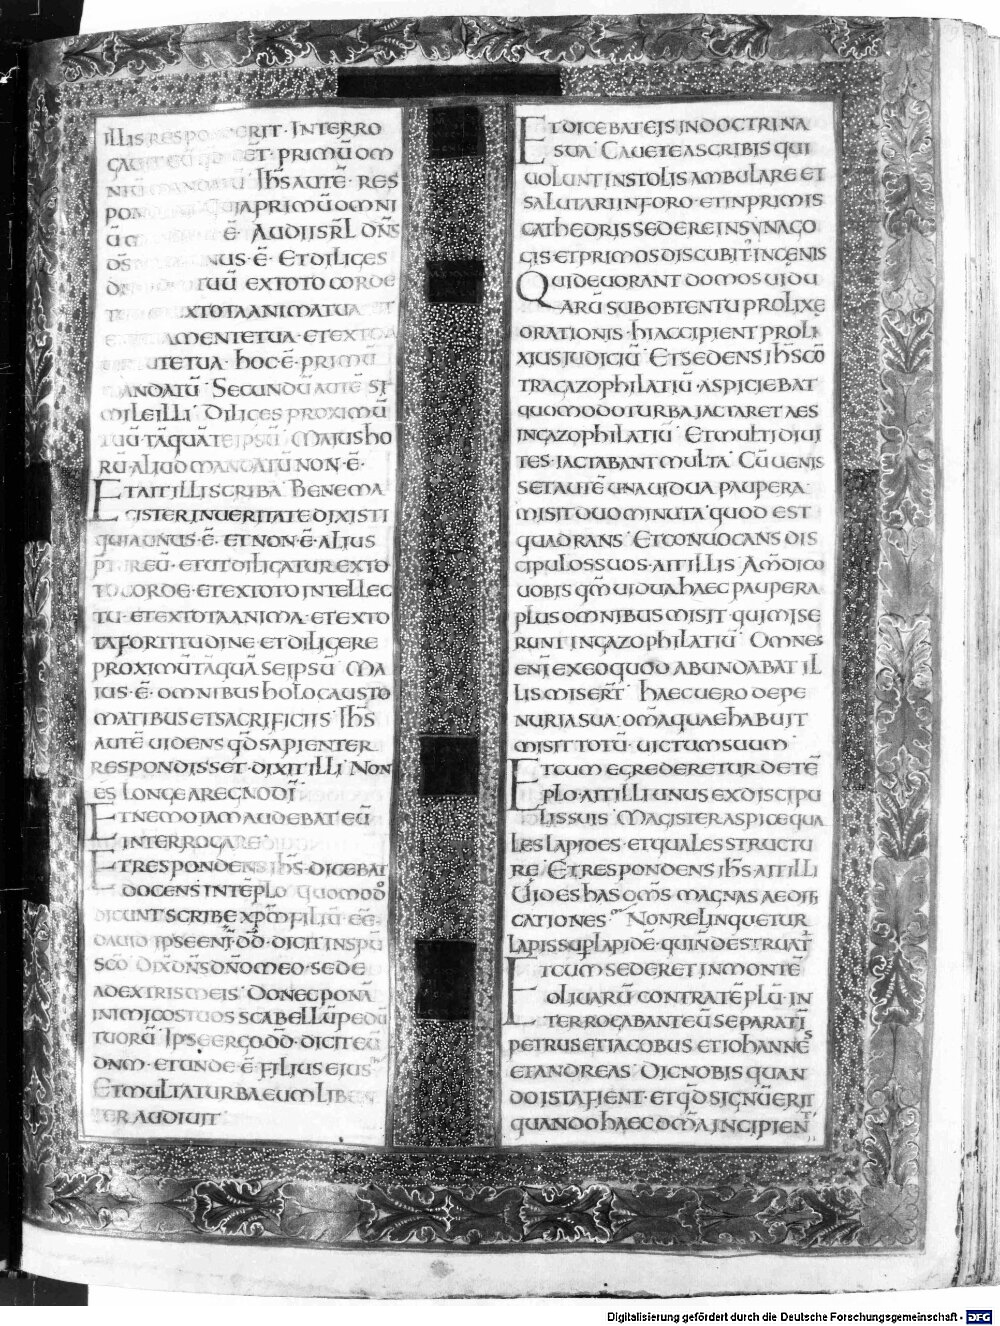 ILLIS RESPONDERIT · INTERRO
GAUIT EŪ QD̄ ĒET · PRIMŪ OM
NIŪ MANDATŪ IH̄S AUTĒ · RES
PON QUIA PRIMŪ OMNI
Ū Ē · AUDI ISRL̄ DN̄S
DS̄ NUS · Ē · ET DILIGES
TUŪ EX TOTO CORDE
EX TOTA ANIMA TUA ET
MENTE TUA · ET EX TOTA
UTE TUA · HOC · Ē · PRIMŪ
MANDATŪ · SECUNDŪ AUTĒ SI
MILE ILLI · DILIGES PROXIMŪ
TUŪ TĀQUĀ TE IPSŪ MAIUS HO
RŪ · ALIUD MANDATŪ NON · Ē ·
ET AIT ILLI SCRIBA · BENE MA
GISTER IN UERITATE DIXISTI
QUIA UNUS · Ē · ET NON · Ē · ALIUS
PT̄ · EREŪ · ET UT DILIGATUR EX TO
TO CORDE · ET EX TOTO INTELLEC
TU · ET EX TOTA ANIMA · ET EX TO
TA FORTITUDINE ET DILIGERE
PROXIMŪ TĀQUĀ SE IPSŪ MA
IUS · Ē · OMNIBUS HOLOCAUSTO
MATIBUS ET SACRIFICIIS · IH̄S
AUTĒ UIDENS QD̄ SAPIENTER
RESPONDISSET · DIXIT ILLI · NON
ES LONGE A REGNO DĪ
ET NEMO IAM AUDEBAT EŪ
INTERROGARE ·
ET RESPONDENS IH̄S · DICEBAT
DOCENS IN TĒPLO QUOMODO
DICUNT SCRIBE XP̄M FILIŪ · EĒ ·
DAUID IPSE ENĪ · DD̄ · DICIT IN SPŪ
SCŌ DIX̄ DN̄S DN̄O MEO · SEDE
AD EXTRIS MEIS DONEC PONĀ
INIMICOS TUOS SCABELLŪ PEDŪ
TUORŪ IPSE ERGO DD̄ · DICIT EŪ
DNM̄ · ET UNDE · Ē · FILIUS EIUS
ET MULTA TURBA EUM LIBEN
TER AUDIUIT ·
ET DICEBAT EIS IN DOCTRINA
SUA · CAUETE A SCRIBIS QUI
UOLUNT IN STOLIS AMBULARE ET
SALUTARI IN FORO · ET IN PRIMIS
CATHEDRIS SEDERE IN SYNAGO
GIS ET PRIMOS DISCUBIT' IN CENIS
QUI DEUORANT DOMOS UIDU
ARŪ SUB OBTENTU PROLIXĘ
ORATIONIS · HI ACCIPIENT PROLI
XIUS IUDICIŪ ET SEDENS IH̄S CŌ
TRA GAZOPHILATIŪ · ASPICIEBAT
QUOMODO TURBA IACTARET AES
IN GAZOPHILATIŪ · ET MULTI DIUI
TES · IACTABANT MULTA · CŪ UENIS
SET AUTĒ UNA UIDUA PAUPERA
MISIT DUO MINUTA · QUOD EST
QUADRANS · ET CONUOCANS DIS
CIPULOS SUOS · AIT ILLIS AM̄ DICO
UOBIS QM̄ UIDUA HAEC PAUPERA
PLUS OMNIBUS MISIT · QUI MISE
RUNT IN GAZOPHILATIŪ · OMNES
ENĪ EX EO QUOD ABUNDABAT IL
LIS MISERT̄ · HAEC UERO DE PE
NURIA SUA · OM̄A QUAE HABUIT
MISIT TOTŪ · UICTUM SUUM
ET CUM EGREDERETUR DE TĒ
PLO · AIT ILLI UNUS EX DISCIPU
LIS SUIS · MAGISTER ASPICE QUA
LES LAPIDES · ET QUALES STRUCTU
RĘ · ET RESPONDENS IH̄S AIT ILLI
UIDES HAS OM̄S MAGNAS AEDIFI
CATIONES NON RELINQUETUR
LAPIS SUP LAPIDĒ · QUI N̄ DESTRUAT'
ET CUM SEDERET IN MONTĒ
OLIUARŪ CONTRA TĒPLŪ · IN
TERROGABANT EŪ SEPARATĪ
PETRUS ET IACOBUS ET IOHANNES
ET ANDREAS · DIC NOBIS QUAN
DO ISTA FIENT · ET QD̄ SIGNŪ ERIT
QUANDO HAEC OM̄A INCIPIEN
Digitalisierung gefördert durch die Deutsche Forschungsgemeinschaft - DFG